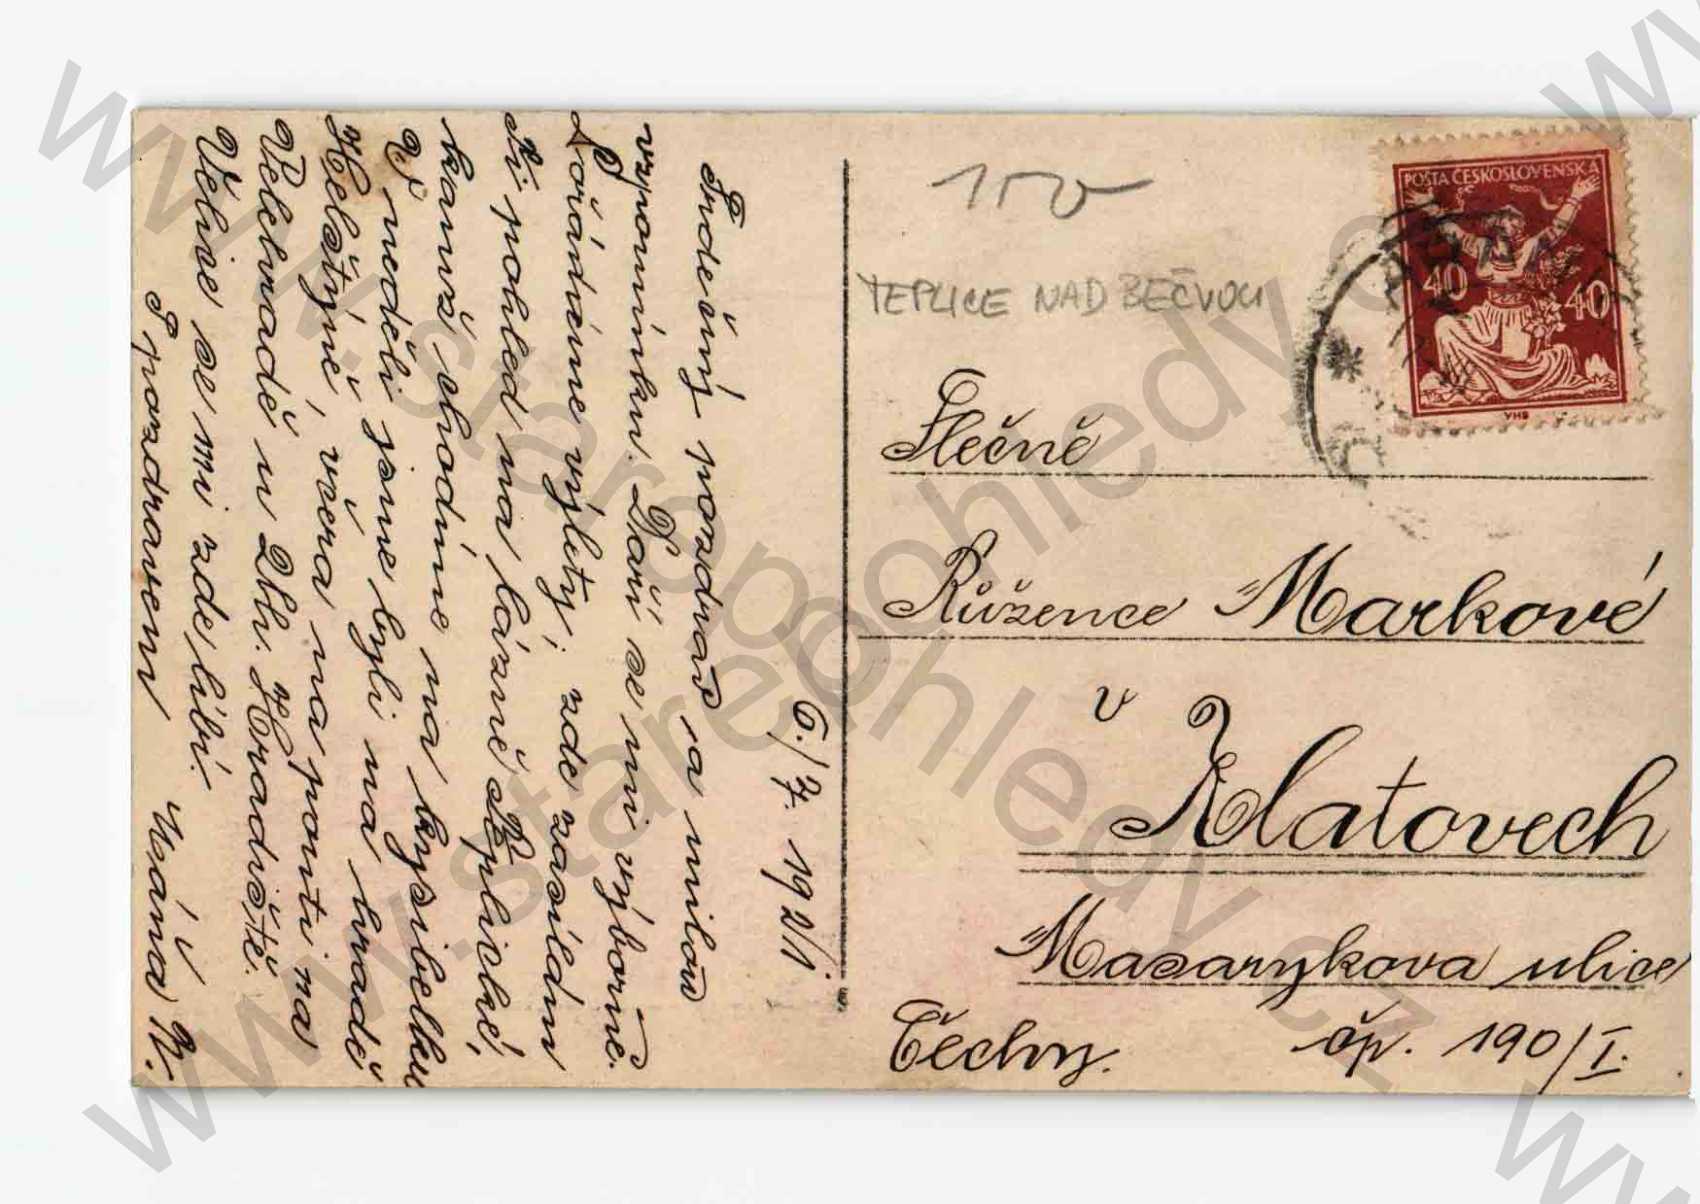 6./7. 1921
Srdečný pozdrav a milou
vzpomínku. Daří se mi výborně.
Pořádáme výlety; zde zasílám
Ti pohled na lázně Teplické,
kamž chodíme na kysibelku
V neděli jsme byli na hradě
Helštýně, včera na pouti na
Velehradě u Uh. Hradiště.
Velice se mi zde líbí.
S pozdravem Máňa
150
TEPLICE NAD BEČVOU
POŠTA ČESKOSLOVENSKÁ
40 40
VHB
Slečně
Růžence Markové
v
Klatovech
Masarykova ulice
Čechy. čp. 190/I.
www.starepohledy.cz
www.starepohledy.cz